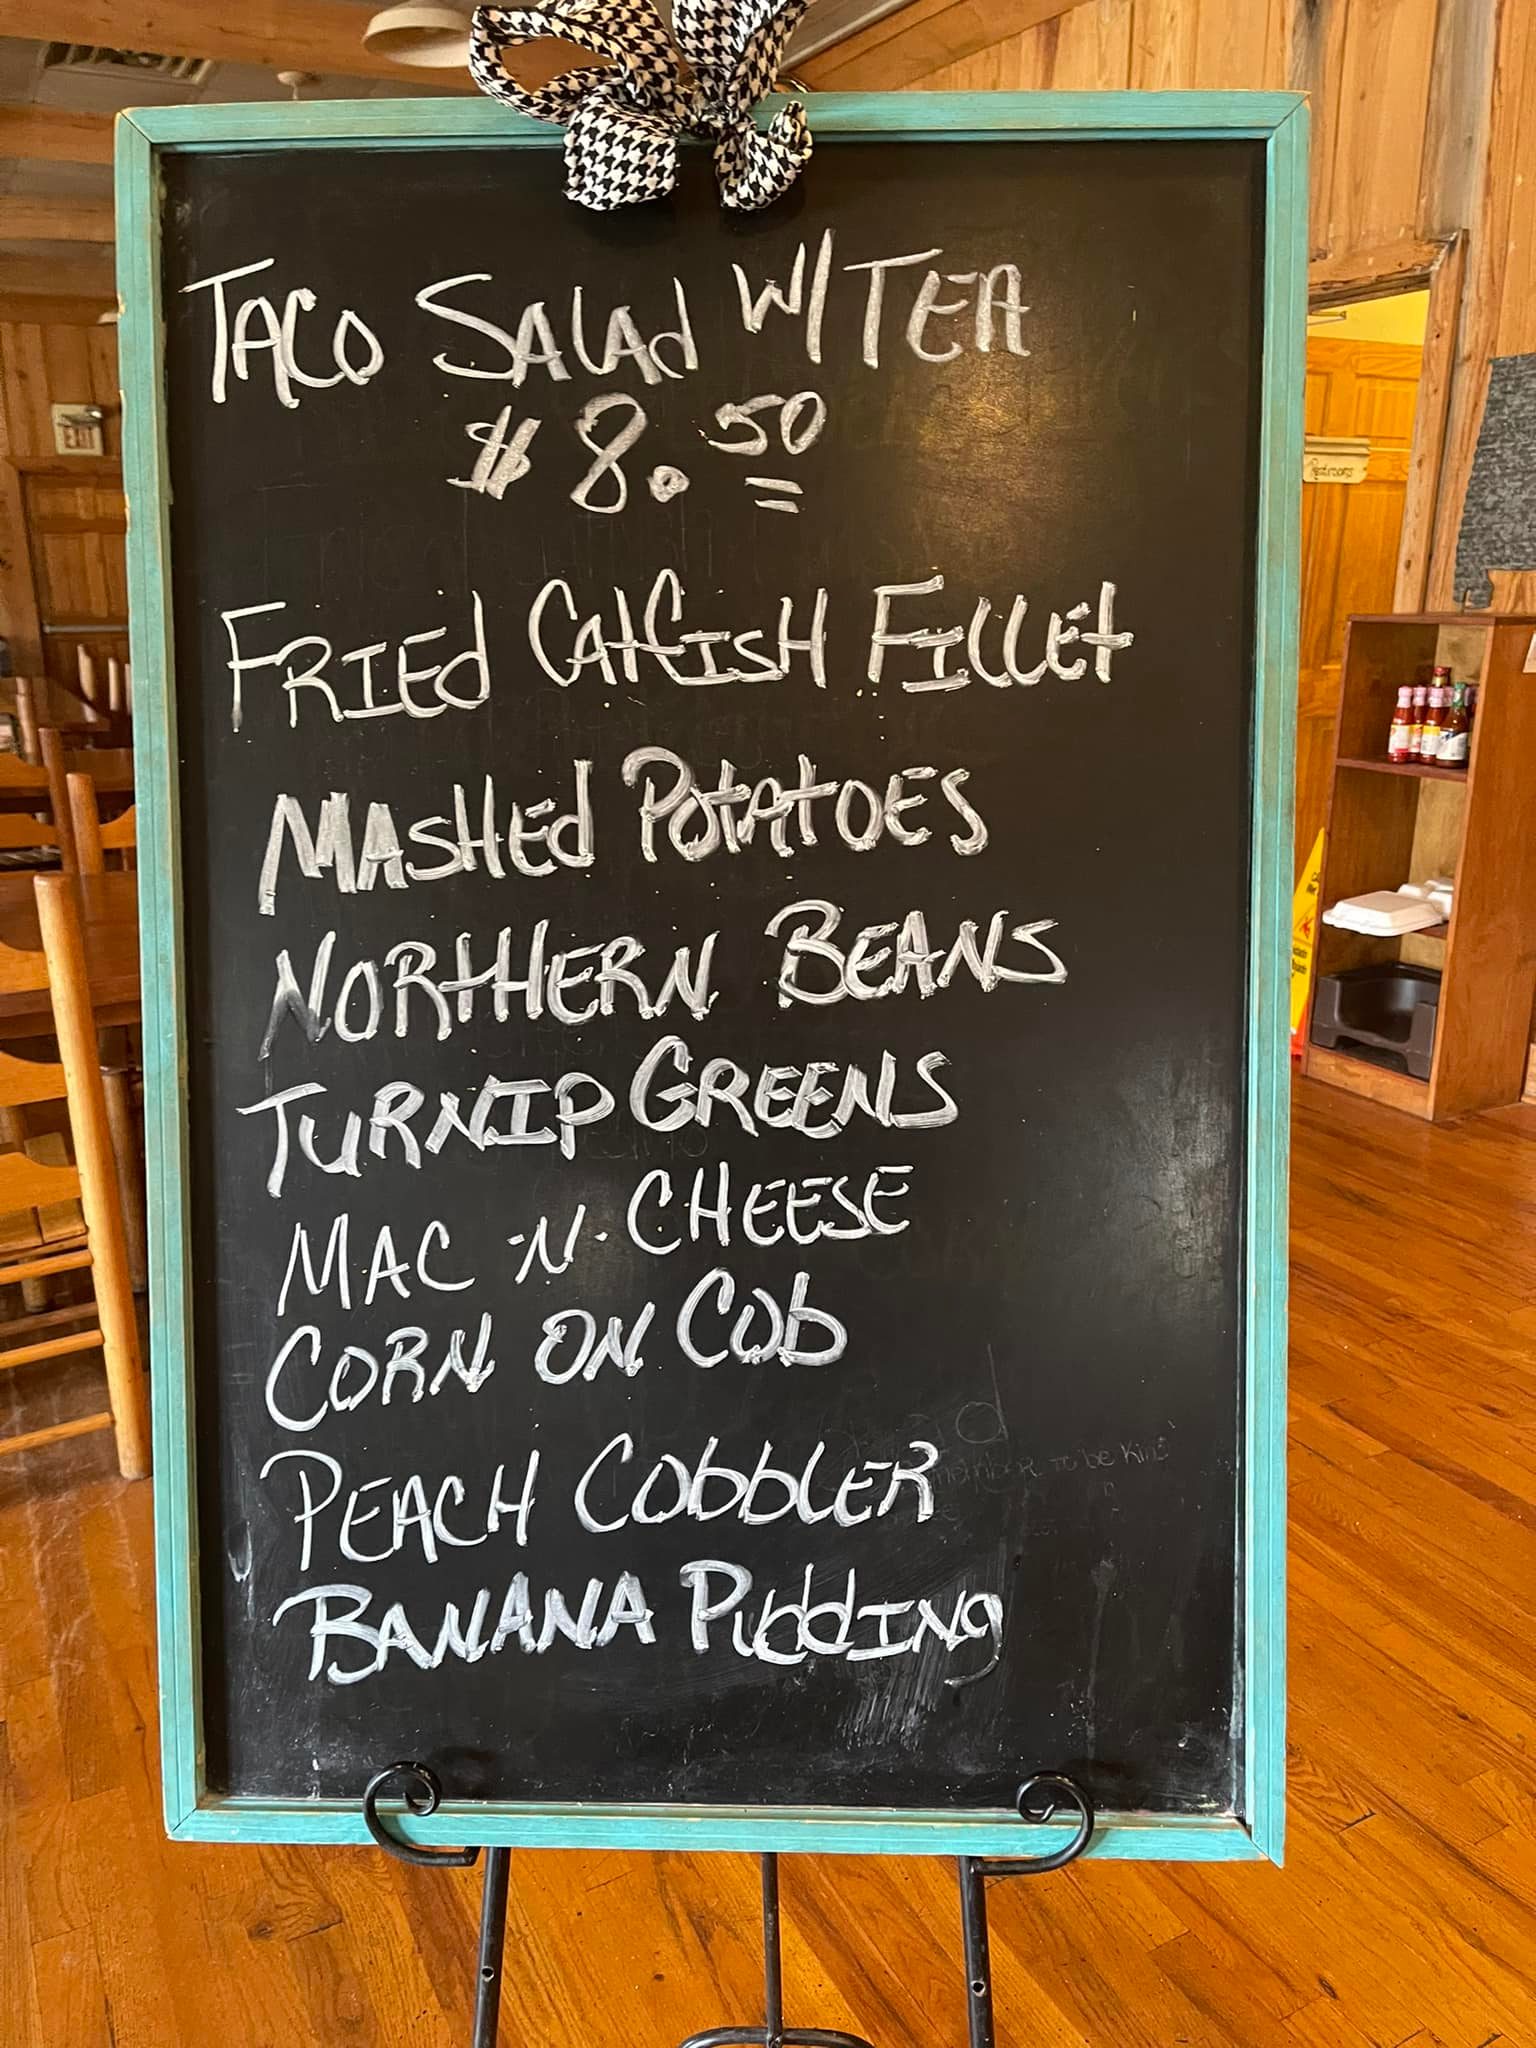 TACO SALAD W/ TEA
$8.50
FRIED CATFISH FILLET
MASHED POTATOES
NORTHERN BEANS
TURNIP GREENS
MAC -N- CHEESE
CORN ON COB
PEACH COBBLER
BANANA PUDDING
Restrooms
EXIT